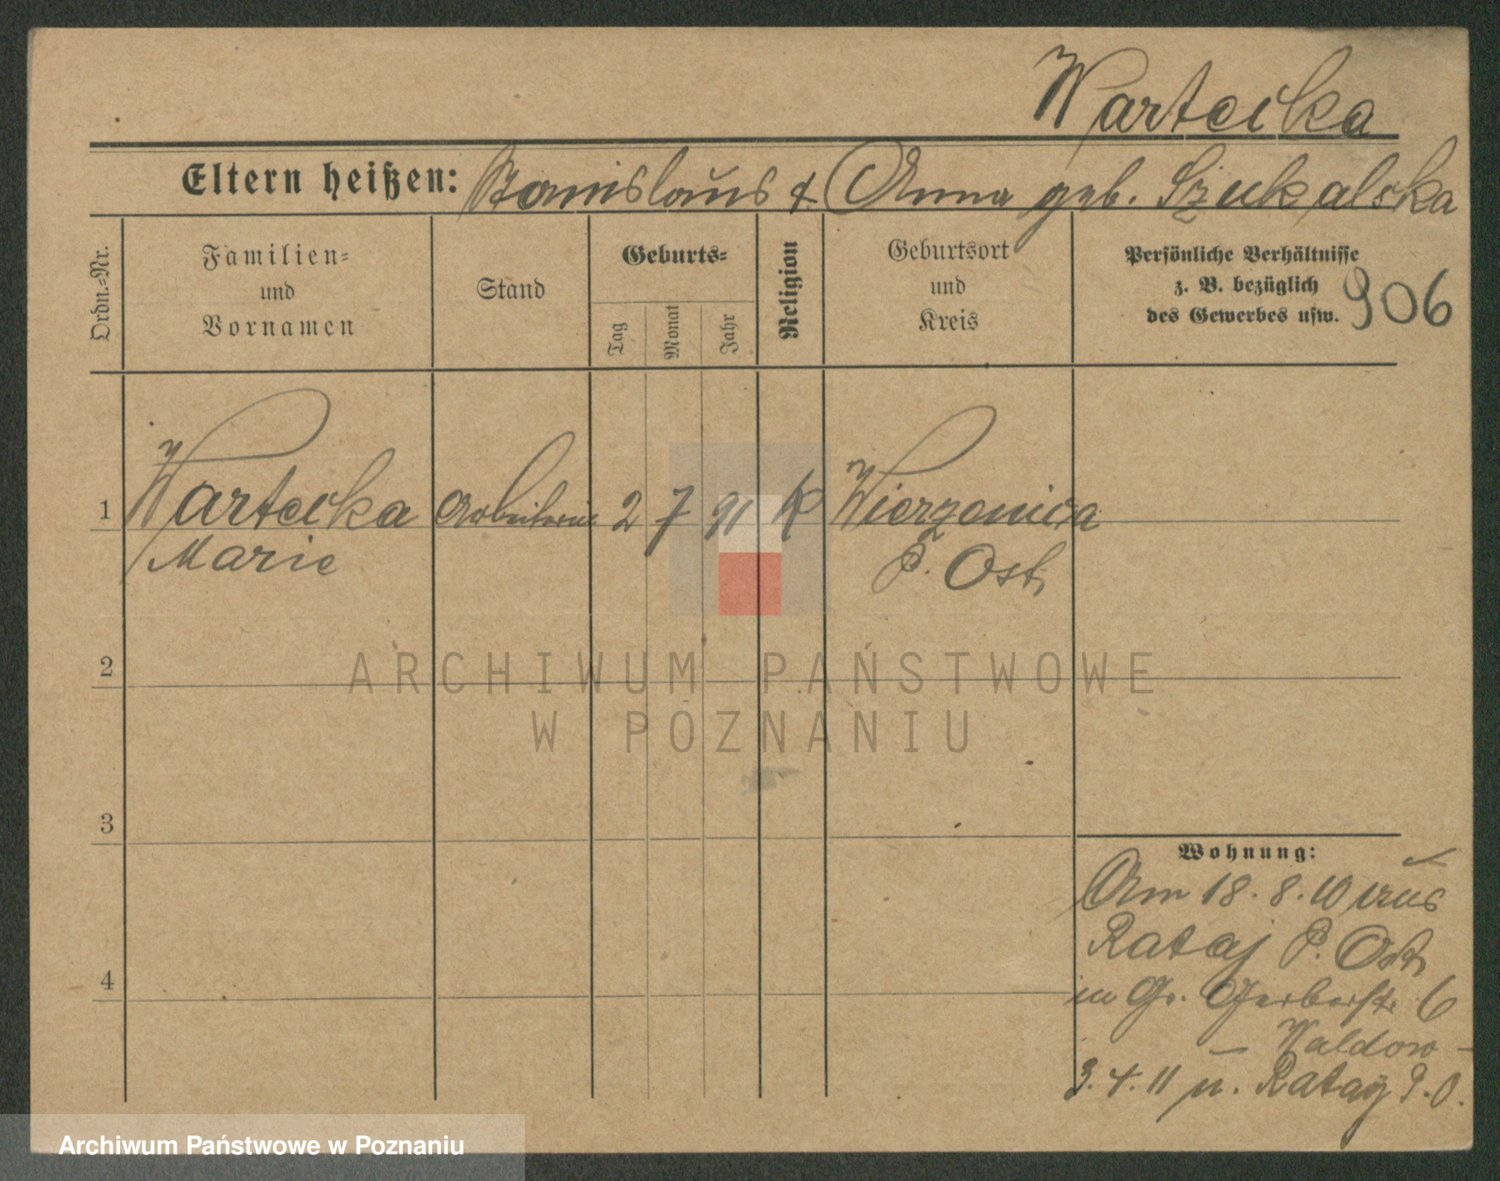 Wartecka
Eltern heißen: Stanislaus & Anna geb. Szukalska
Ordn.-Nr.
Familien- und Vornamen
Stand
Geburts-
Tag
Monat
Jahr
Religion
Geburtsort und Kreis
Persönliche Verhältnisse
z. B. bezüglich
des Gewerbes usw.
906
1 Wartecka Arbeiterin 2 7 91 K Wierzenica
Marie P. Ost
2
3
4
Wohnung:
Am 18. 8. 10 aus
Rataj P. Ost
in Gr. Gerberstr. 6
Waldow
3. 4. 11 n. Rataj P. O.
ARCHIWUM PAŃSTWOWE
W POZNANIU
Archiwum Państwowe w Poznaniu